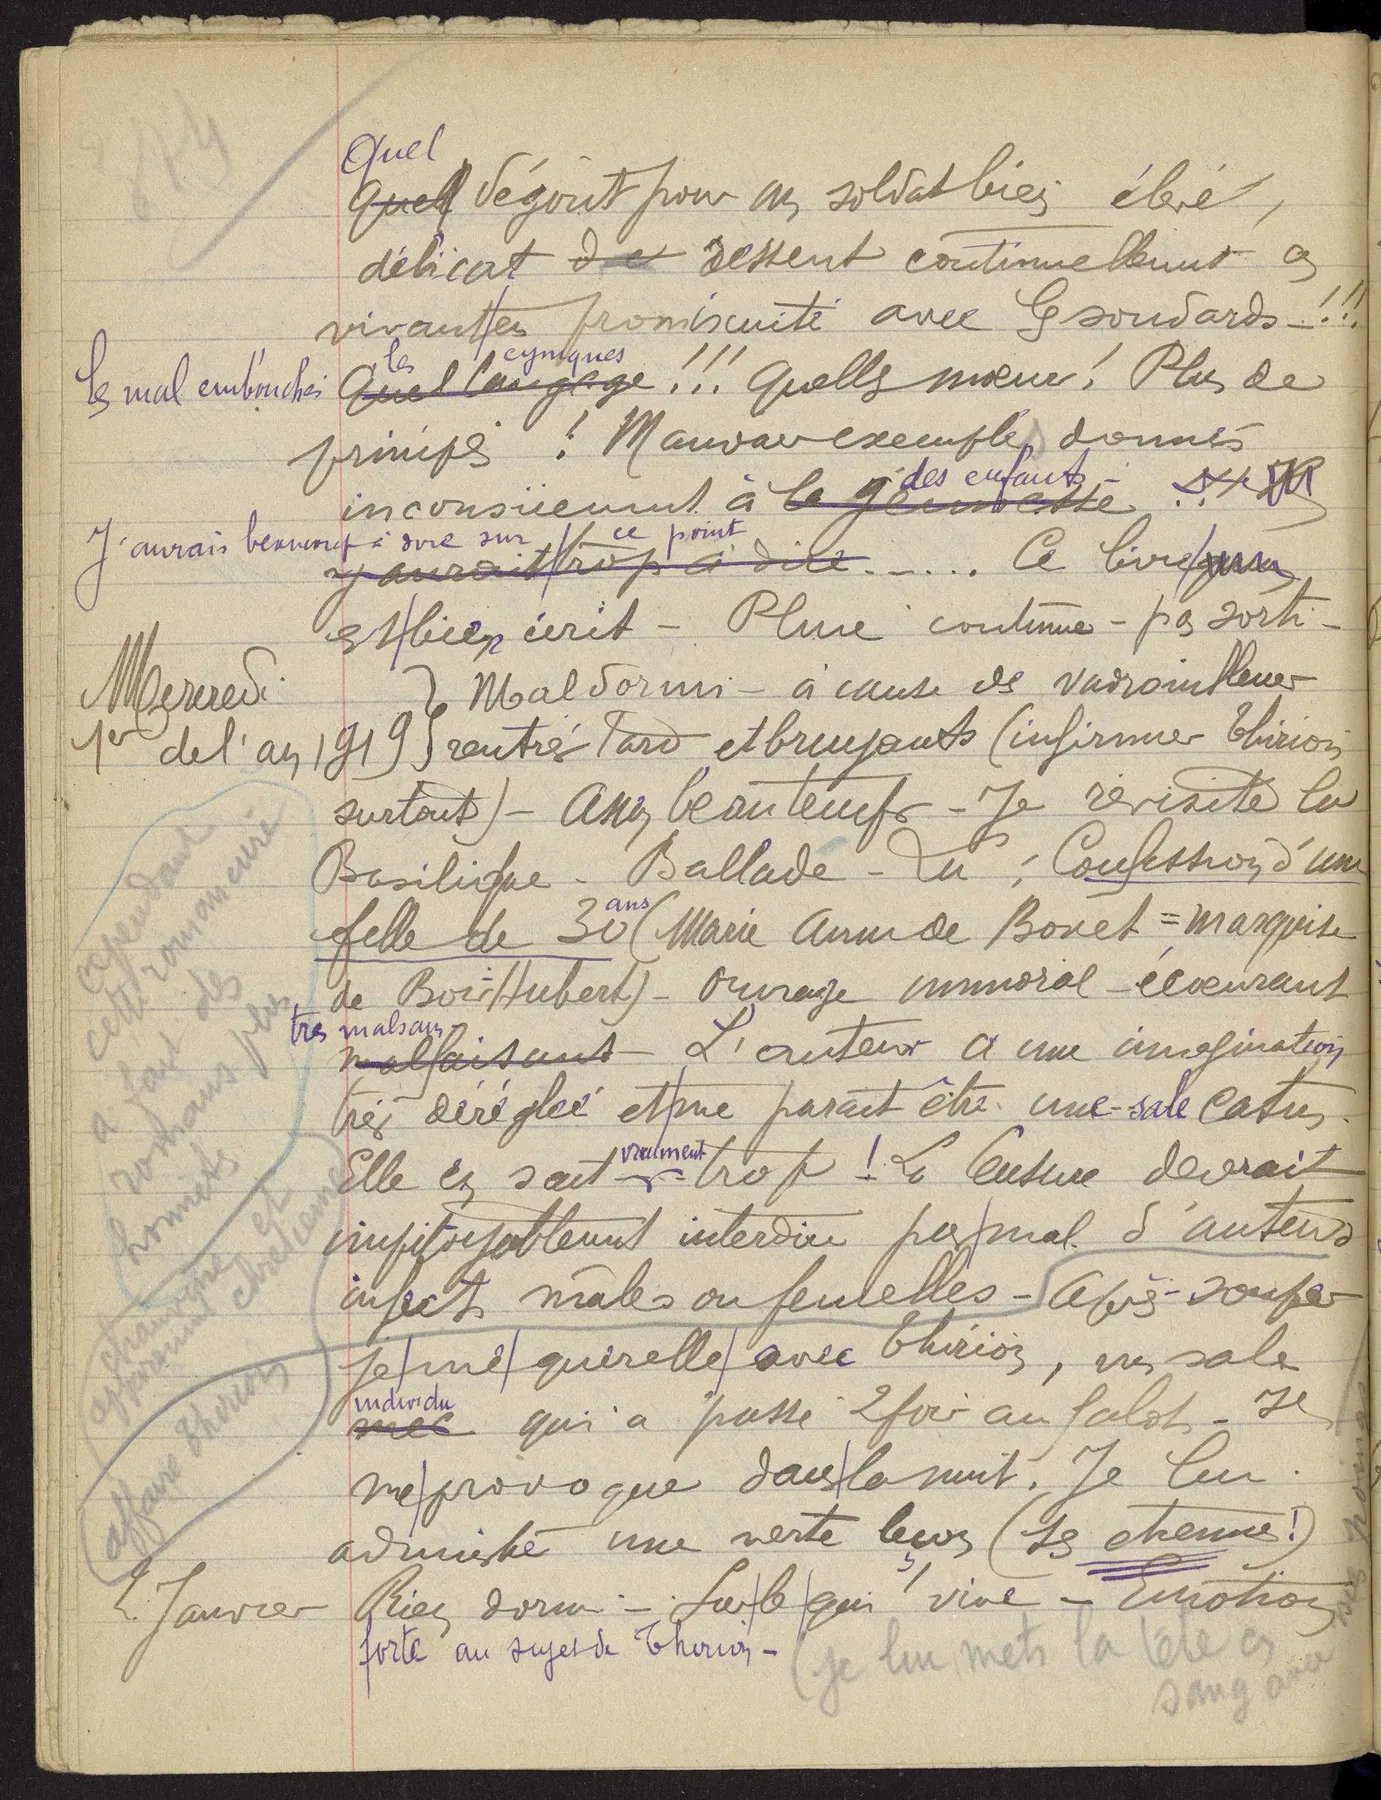 Quel
Quel dégoût pour un soldat bien élevé,
délicat de ressent continuellement en
vivant en promiscuité avec les soudards - !!!
les mal embouchés les cyniques
Quel langage !!! Quelles mœurs ! Plus de
principes ! Mauvais exemples donnés
inconsciemment à la jeunesse des enfants - !!
J'aurais beaucoup à dire sur ce point
y aurait trop à dire ...... Ce livre
est bien écrit - Pluie continue - pas sorti -
Mercredi
1er de l'an 1919
Mal dormi - à cause de vadrouilleurs
rentrés tard et bruyants (infirmier Thirion
surtout) - Assez beau temps - Je revisite la
Basilique - Ballade - Lu : Confession d'une
fille de 30 ans (Marie Anne de Bovet = marquise
de Bois-Hubert) - Ouvrage immoral - écœurant
très malsain
malfaisant - L'auteur a une imagination
très déréglée et me paraît être une sale catin.
Elle en sait vraiment trop ! La Censure devrait
impitoyablement interdire pas mal d'auteurs
infects mâles ou femelles - Après souper
je me querelle avec Thirion, un sale
individu
mec qui a passé 2 fois au falot - Il
me provoque dans la nuit. Je lui
administre une verte leçon (ses étrennes !)
2 Janvier Rien dormi - Sur le qui vive - Emotion
forte au sujet de Thirion -
(je lui mets la tête en
sang avec
mes poings
cependant
cette romancière
a fait des
romans plus
honnêtes
et
chrétienne
affaire Thirion